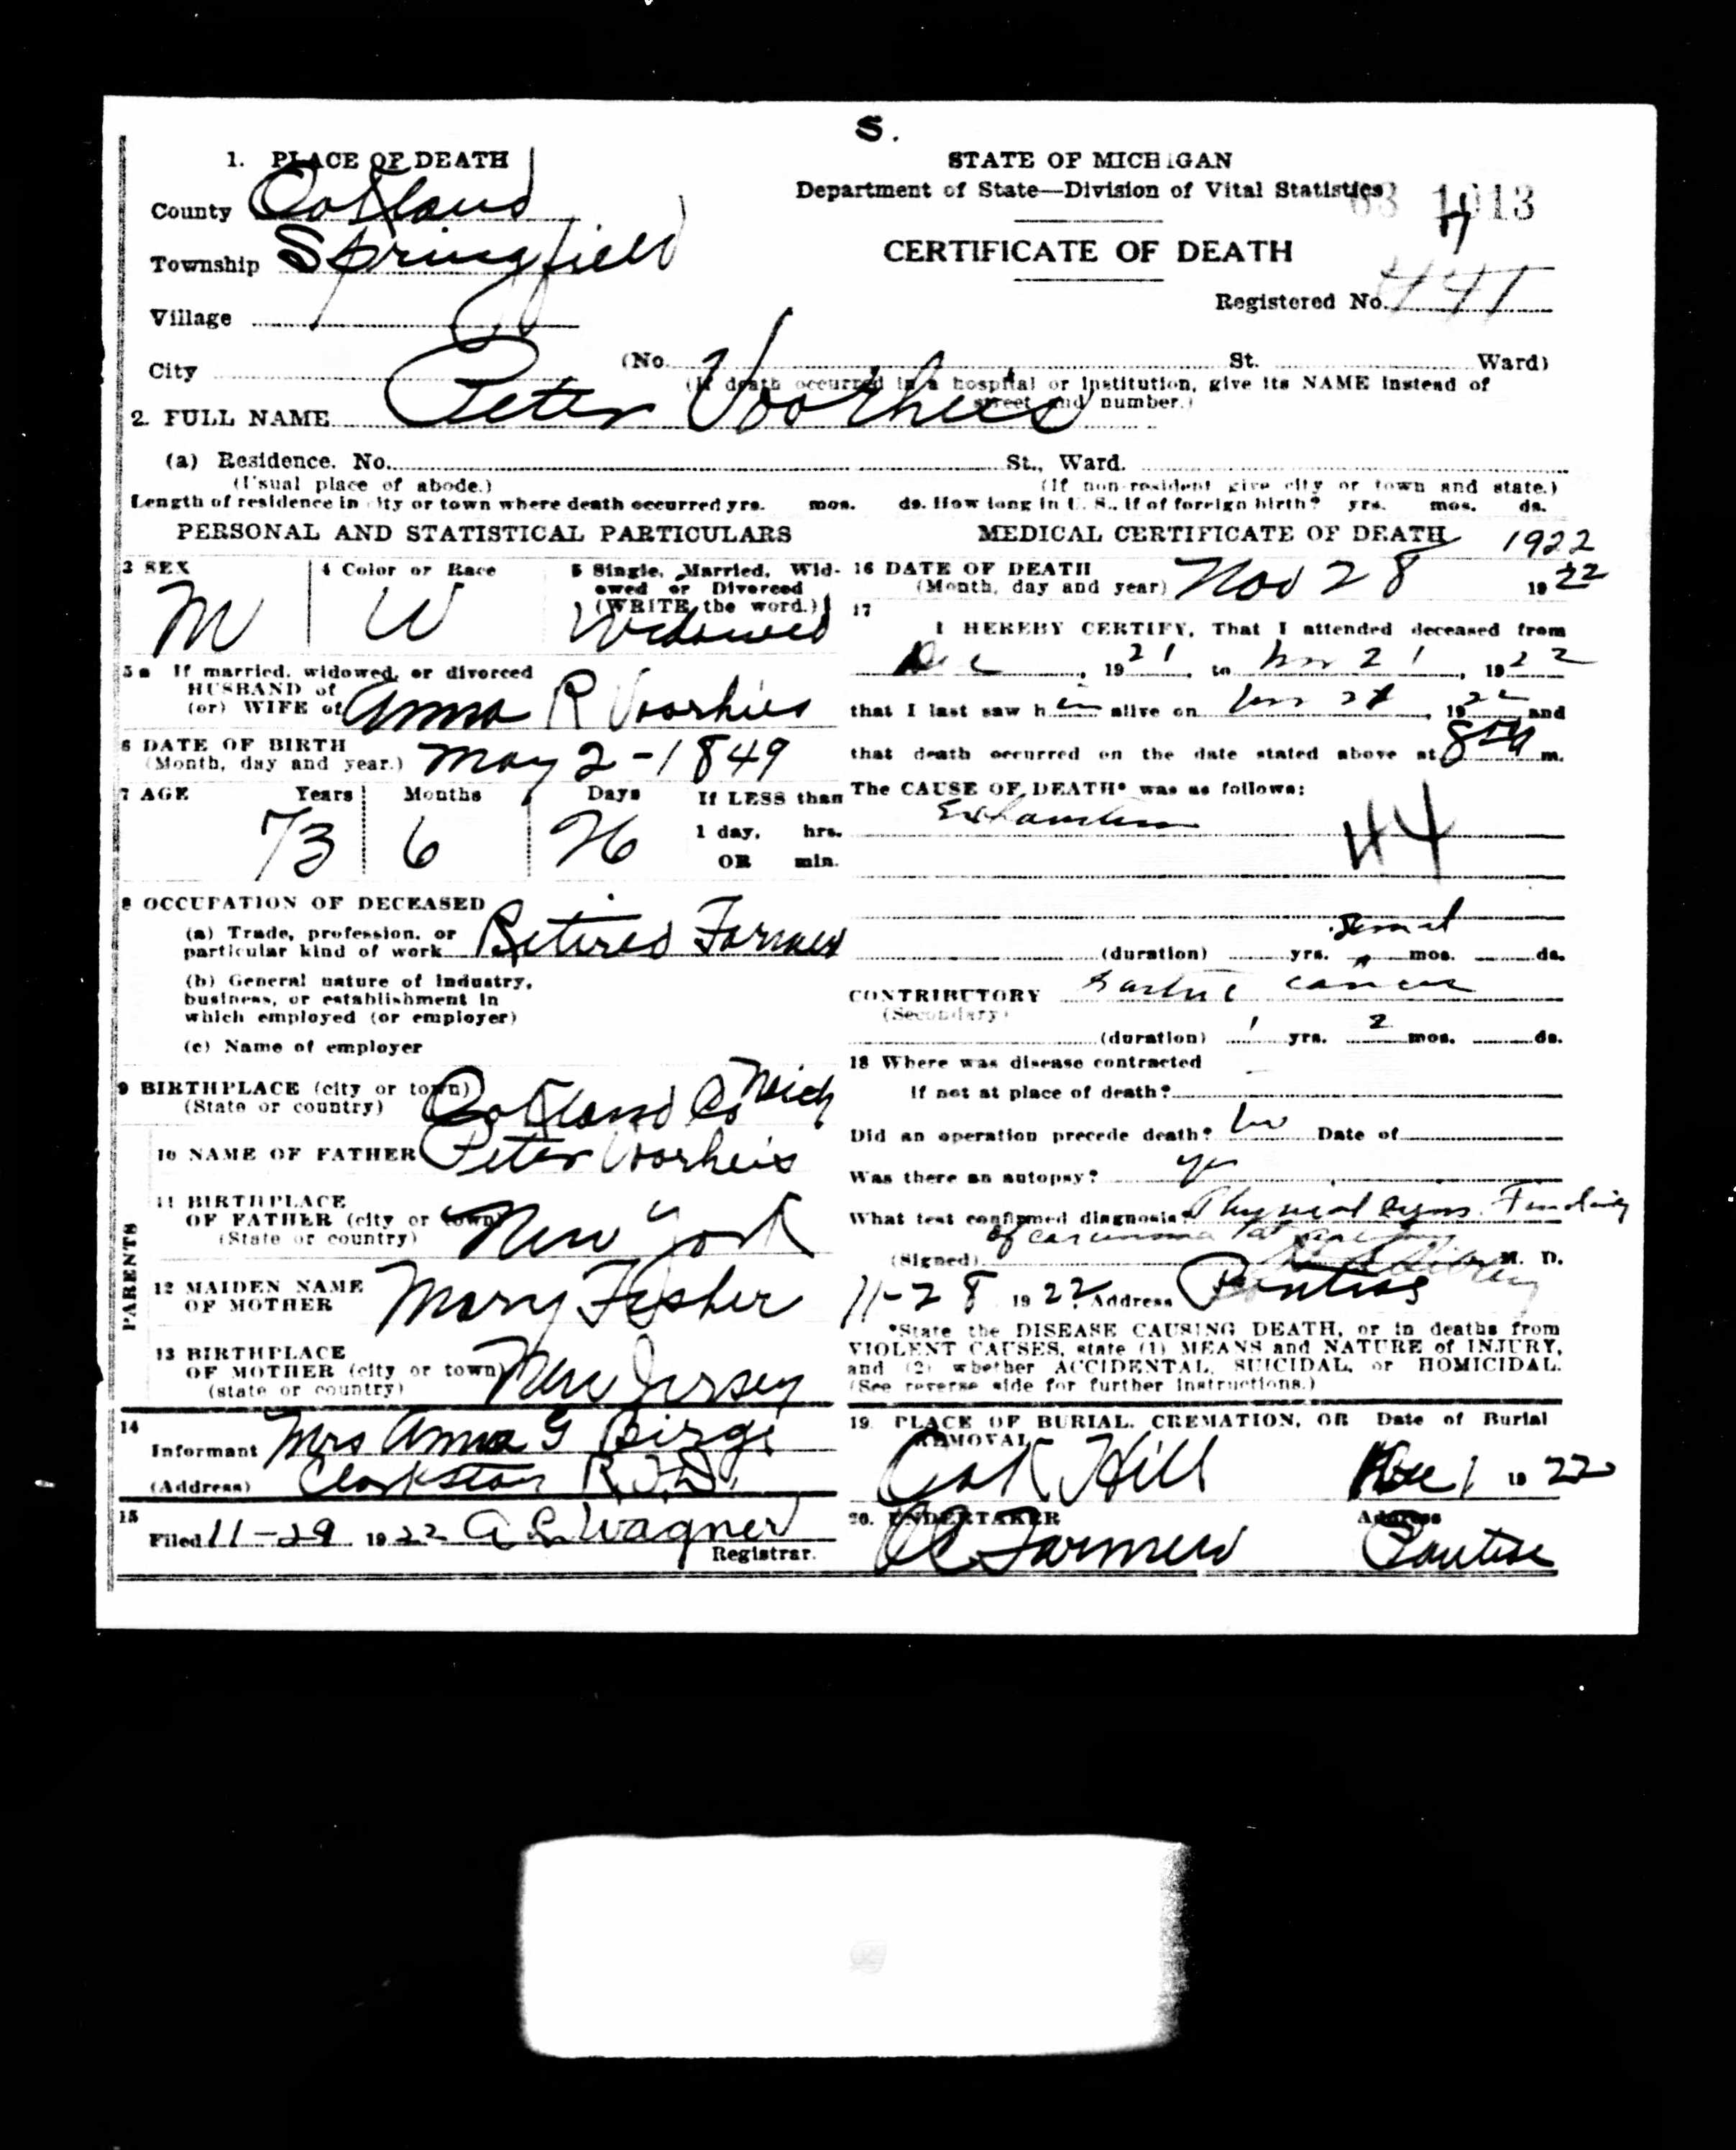 S.
1. PLACE OF DEATH
County Oakland
Township Springfield
Village
City
STATE OF MICHIGAN
Department of State—Division of Vital Statistics
63 1013
CERTIFICATE OF DEATH
Registered No. 441
(No. St. Ward)
(If death occurred in a hospital or institution, give its NAME instead of
street and number.)
2. FULL NAME Peter Voorheis
(a) Residence. No. St., Ward.
(Usual place of abode.) (If non-resident give city or town and state.)
Length of residence in city or town where death occurred yrs. mos. ds. How long in U. S., if of foreign birth? yrs. mos. ds.
PERSONAL AND STATISTICAL PARTICULARS
3 SEX
M
4 Color or Race
W
5 Single, Married, Wid-
owed or Divorced
(WRITE the word.)
Widowed
5a If married, widowed, or divorced
HUSBAND of
(or) WIFE of Anna R Voorhies
6 DATE OF BIRTH
(Month, day and year.) May 2-1849
7 AGE Years Months Days If LESS than
73 6 26 1 day, hrs.
OR min.
8 OCCUPATION OF DECEASED
(a) Trade, profession, or
particular kind of work Retired Farmer
(b) General nature of industry,
business, or establishment in
which employed (or employer)
(c) Name of employer
9 BIRTHPLACE (city or town)
(State or country) Oakland Co Mich
PARENTS
10 NAME OF FATHER Peter Voorheis
11 BIRTHPLACE
OF FATHER (city or town)
(State or country) New York
12 MAIDEN NAME
OF MOTHER Mary Fisher
13 BIRTHPLACE
OF MOTHER (city or town)
(state or country) New Jersey
14
Informant Mrs Anna G Birge
(Address) Clarkston R.F.D.
15
Filed 11-29 1922 A L Wagner
Registrar.
MEDICAL CERTIFICATE OF DEATH 1922
16 DATE OF DEATH
(Month, day and year) Nov 28 1922
17
I HEREBY CERTIFY, That I attended deceased from
Dec, 1921, to Nov 21, 1922
that I last saw h im alive on Nov 28, 1922 and
that death occurred on the date stated above at 8 m.
The CAUSE OF DEATH* was as follows:
Exhaustion
44
(duration) yrs. Several mos. ds.
CONTRIBUTORY Gastric cancer
(Secondary)
(duration) 1 yrs. 2 mos. ds.
18 Where was disease contracted
if not at place of death?
Did an operation precede death? No Date of
Was there an autopsy? yes
What test confirmed diagnosis? Physical signs. Finding
of carcinoma at
(Signed) M. D.
11-28 1922 Address Pontiac
*State the DISEASE CAUSING DEATH, or in deaths from
VIOLENT CAUSES, state (1) MEANS and NATURE of INJURY,
and (2) whether ACCIDENTAL, SUICIDAL, or HOMICIDAL.
(See reverse side for further instructions.)
19. PLACE OF BURIAL, CREMATION, OR Date of Burial
REMOVAL
Oak Hill Dec 1 1922
20. UNDERTAKER Address
Farmer Pontiac